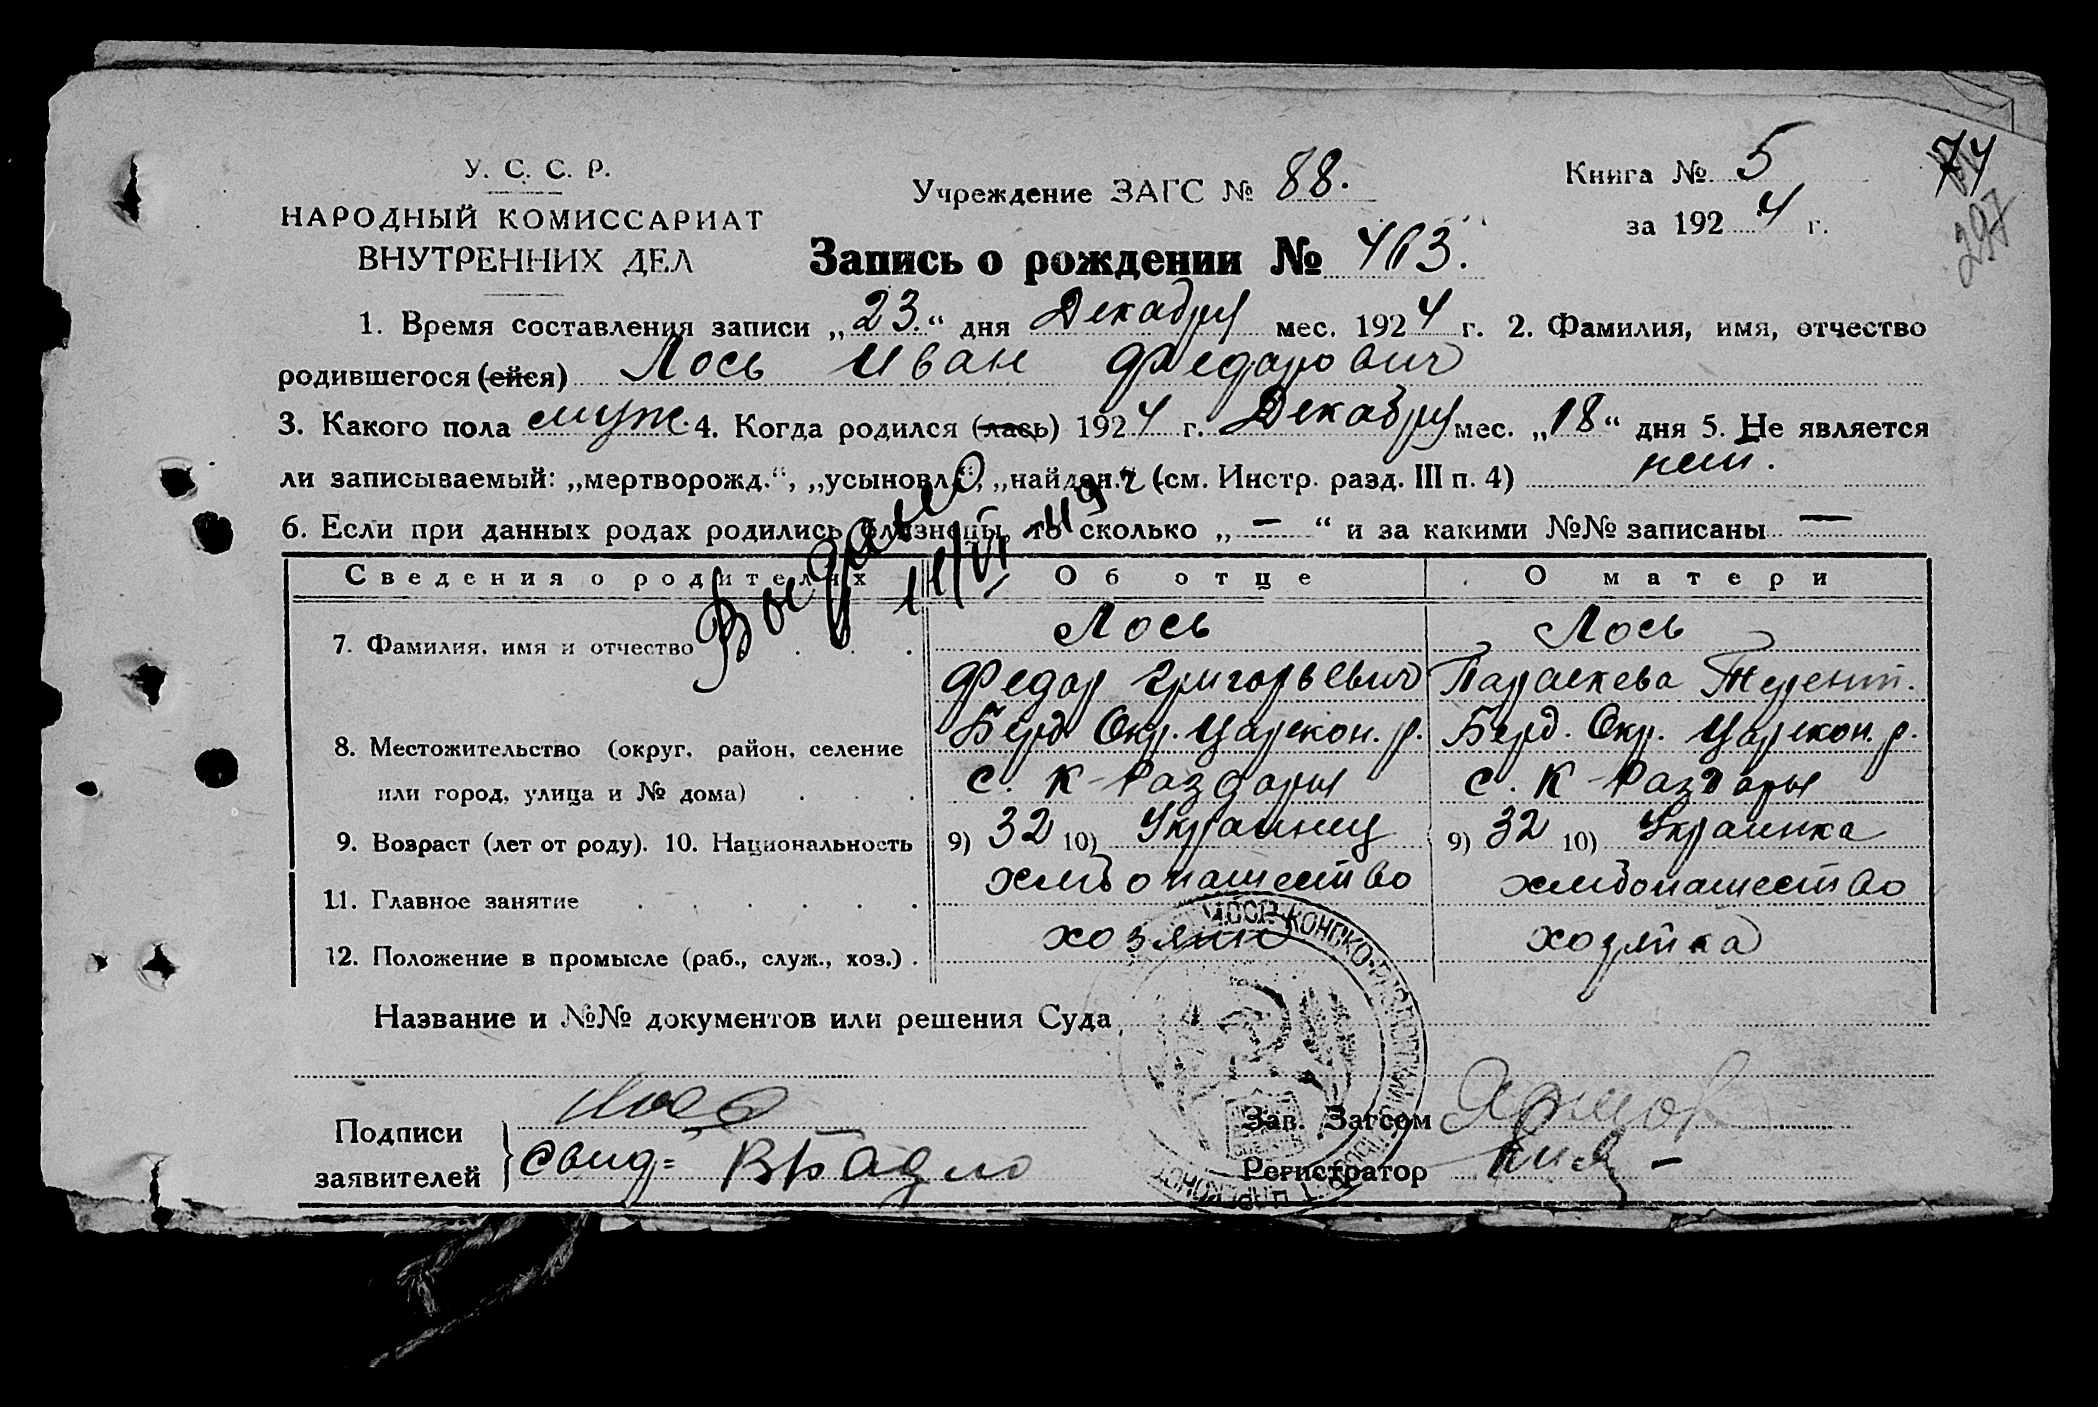 У. С. С. Р.
НАРОДНЫЙ КОМИССАРИАТ
ВНУТРЕННИХ ДЕЛ
Учреждение ЗАГС № 88.
Книга № 5
за 1924 г.
74
297
Запись о рождении № 463.
1. Время составления записи „23.“ дня Декабря мес. 1924 г. 2. Фамилия, имя, отчество
родившегося (ейся) Лось Иван Федорович
3. Какого пола муж. 4. Когда родился (лась) 1924 г. Декабря мес. „18“ дня 5. Не является
ли записываемый: „мертворожд.“, „усыновл.“, „найден.“ (см. Инстр. разд. III п. 4) нет.
6. Если при данных родах родились близнецы, то сколько „—“ и за какими №№ записаны —
Выдано
Сведения о родителях Об отце О матери
7. Фамилия, имя и отчество Лось Лось
Федор Григорьевич Параскева Терент.
8. Местожительство (округ, район, селение Берд. Окр. Царекон. р. Берд. Окр. Царекон. р.
или город, улица и № дома) с. К-Раздоры с. К-Раздоры
9. Возраст (лет от роду). 10. Национальность 9) 32 10) Украинец 9) 32 10) Украинка
11. Главное занятие хлебопашество хлебопашество
12. Положение в промысле (раб., служ., хоз.) хозяин хозяйка
Название и №№ документов или решения Суда
Подписи
заявителей
Лось
Свид=
Зав. Загсом
Регистратор